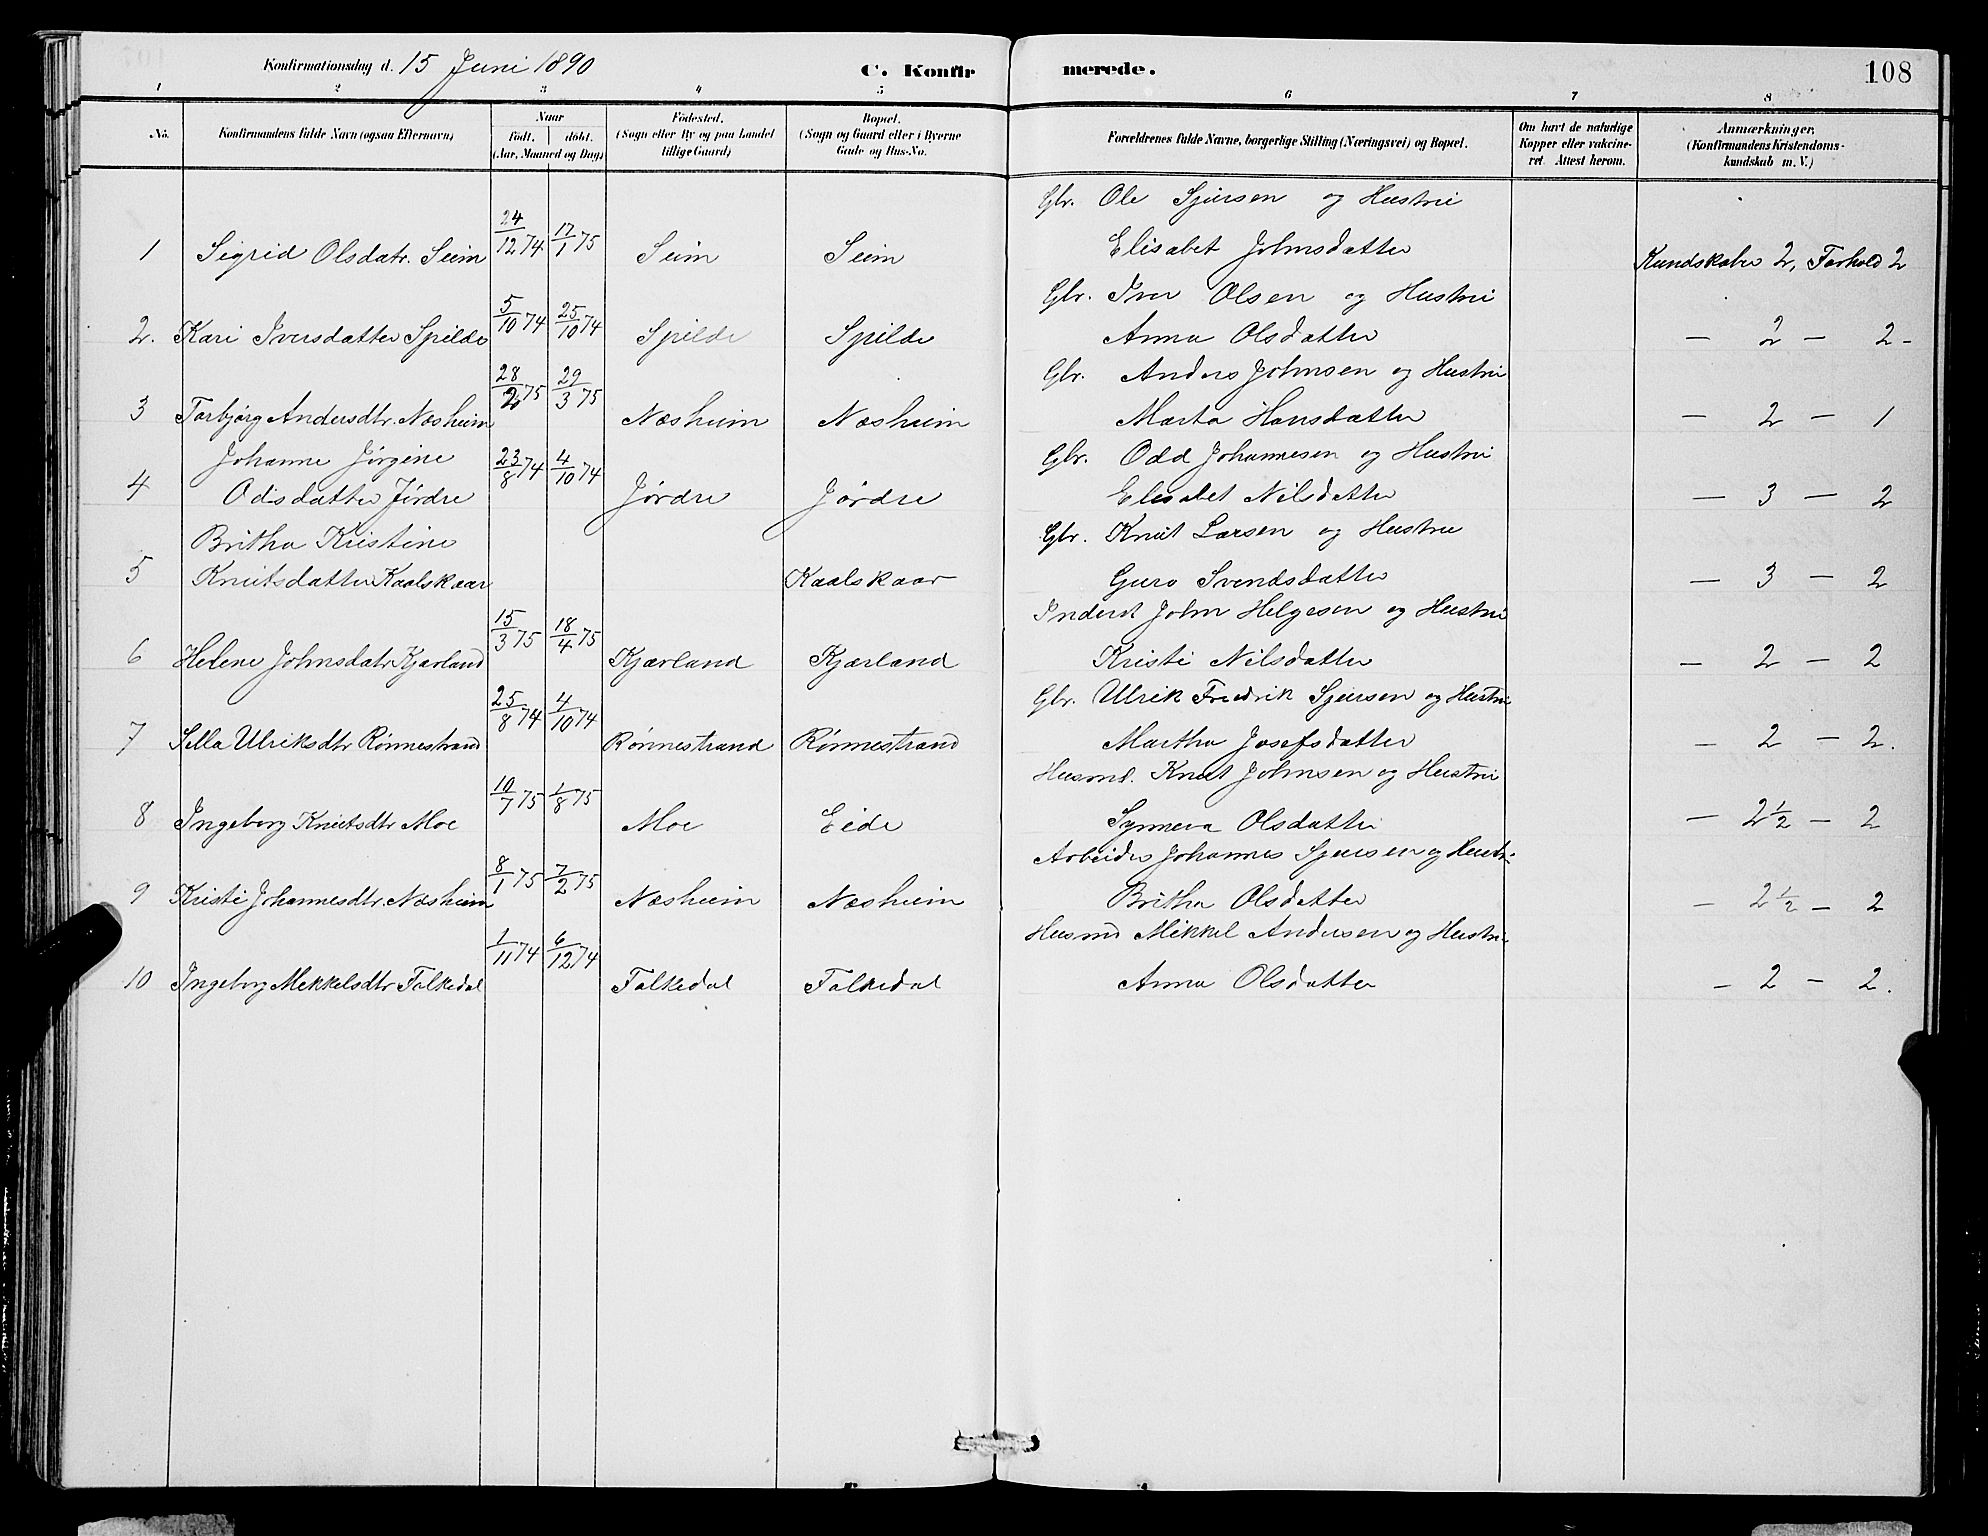 Konfirmationsdag d. 15 Juni 1890
C. Konfir
merede.
108
1 2 3 4 5 6 7 8
No.
Konfirmandens fulde Navn (ogsaa Efternavn)
Naar
Födt. döbt.
(Aar, Maaned og Dag)
Födested.
(Sogn eller By og paa Landet
tillige Gaard)
Bopæl.
(Sogn og Gaard eller i Byerne
Gade og Hus-No.
Forældrenes fulde Navne, borgerlige Stilling (Næringsvei) og Bopæl.
Om havt de naturlige
Kopper eller vakcine-
ret. Attest herom.
Anmærkninger.
(Konfirmandens Kristendoms-
kundskab m. V.)
Gbr. Ole Sjursen og Hustru
1 Sigrid Olsdatr. Seim 24/12 74 17/1 75 Seim Seim Elisabet Johnsdatter Kundskaber 2, Forhold 2
Gbr. Iver Olsen og Hustru
2. Kari Iversdatter Spilde 5/10 74 25/10 74 Spilde Spilde Anna Olsdatter — 2 — 2 -
Gbr. Anders Johnsen og Hustru
3 Torbjörg Andersdtr. Næsheim 28/2 75 29/3 75 Næsheim Næsheim Marta Hansdatter — 2 — 1
Johanne Jørgine Gbr. Odd Johannesen og Hustru
4 Odisdatter Jørdre 23/8 74 4/10 74 Jørdre Jørdre Elisabet Nilsdatter — 3 — 2
Britha Kristine Gbr. Knut Larsen og Hustru
5 Knutsdatter Kaalskaar Kaalskaar Guro Svendsdatter — 3 — 2
Inderst John Helgesen og Hustru
6 Helene Johnsdatr Kjærland 15/3 75 18/4 75 Kjærland Kjærland Kristi Nilsdatter — 2 — 2
Gbr. Ulrik Fredrik Sjursen og Hustru
7 Sella Ulriksdtr Rønnestrand 25/8 74 4/10 74 Rønnestrand Rønnestrand Martha Josefsdatter — 2 — 2.
Husmd. Knut Johnsen og Hustru
8 Ingeborg Knutsdtr Moe 10/7 75 1/8 75 Moe Eide Synneva Olsdatter — 2 1/2 — 2
Arbeider Johannes Sjursen og Hustr.
9 Kristi Johannesdtr. Næsheim 8/1 75 7/2 75 Næsheim Næsheim Britha Olsdatter — 2 1/2 — 2
Husmd Mikkel Andersen og Hustru
10 Ingeborg Mekkelsdtr Folkedal 1/11 74 6/12 74 Folkedal Folkedal Anna Olsdatter — 2 — 2.